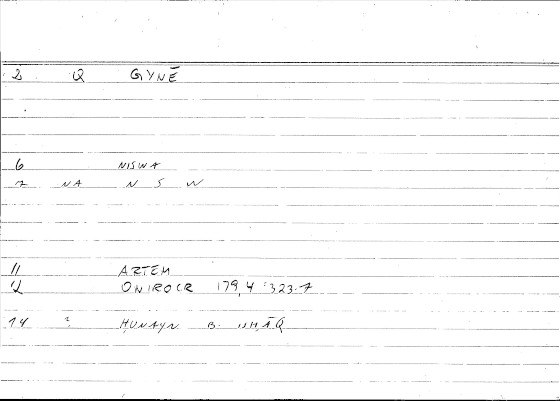 2 Q GYNĒ
6 NISWA
7 NA N S W
11 ARTEM
12 ONIROCR 179,4 : 323.7
14 ḤUNAYN B.